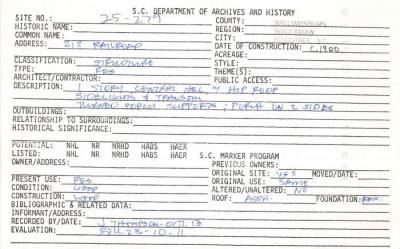 S.C. DEPARTMENT OF ARCHIVES AND HISTORY
SITE NO.: 25-279 COUNTY: WILLIAMSBURG
HISTORIC NAME: REGION: WACCAMAW
COMMON NAME: CITY: KINGSTREE S.C.
ADDRESS: 212 RAILROAD DATE OF CONSTRUCTION: C.1900
ACREAGE:
CLASSIFICATION: STRUCTURE STYLE:
TYPE: RES THEME(S):
ARCHITECT/CONTRACTOR: PUBLIC ACCESS:
DESCRIPTION: 1 STORY CENTRAL HALL W/ HIP ROOF
SIDELIGHTS & TRANSOM
TURNED PORCH SUPPORTS; PORCH ON 2 SIDES
OUTBUILDINGS:
RELATIONSHIP TO SURROUNDINGS:
HISTORICAL SIGNIFICANCE:
POTENTIAL: NHL NR NRHD HABS HAER
LISTED: NHL NR NRHD HABS HAER S.C. MARKER PROGRAM
OWNER/ADDRESS: PREVIOUS OWNERS:
ORIGINAL SITE: YES MOVED/DATE:
PRESENT USE: RES ORIGINAL USE: SAME
CONDITION: GOOD ALTERED/UNALTERED: NO
CONSTRUCTION: WOOD ROOF: ASPH. FOUNDATION:
BIBLIOGRAPHIC & RELATED DATA:
INFORMANT/ADDRESS:
RECORDED BY/DATE: J THOMPSON-OCT. 13
EVALUATION: ROLL 23-10-11